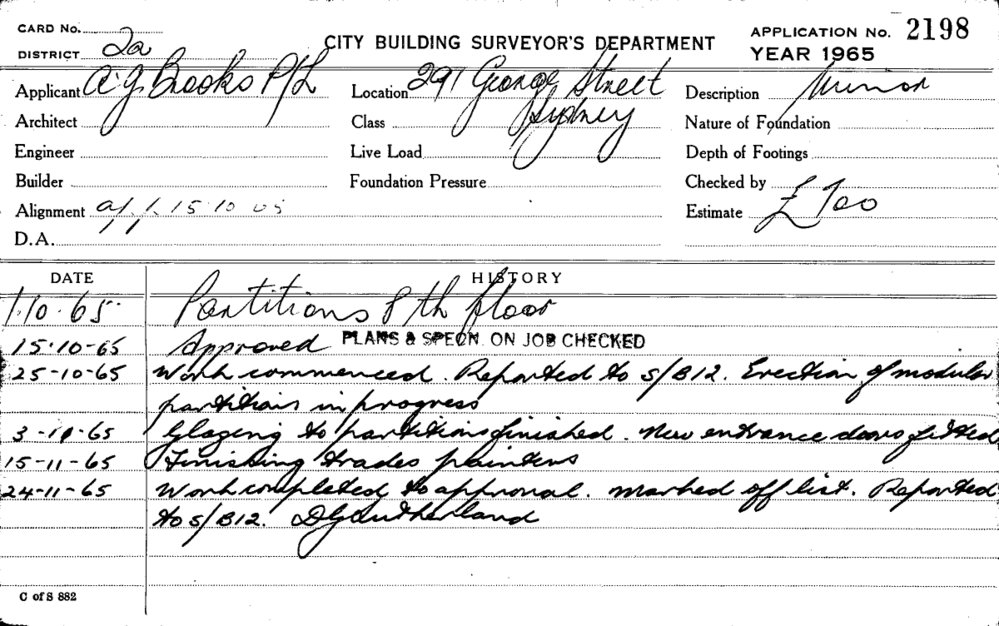 CARD No.
DISTRICT 2a
CITY BUILDING SURVEYOR'S DEPARTMENT
APPLICATION No. 2198
YEAR 1965
Applicant A. G. Brooks P/L
Location 291 George Street
Sydney
Description Minor
Architect
Class
Nature of Foundation
Engineer
Live Load
Depth of Footings
Builder
Foundation Pressure
Checked by
Alignment 15 10 65
Estimate £700
D.A.
DATE HISTORY
1.10.65 Partitions 8th floor
15.10-65 Approved PLANS & SPECN. ON JOB CHECKED
25-10-65 Work commenced. Reported to S/B12. Erection of modular
partitions in progress
3-11-65 Glazing to partitions finished. New entrance doors fitted
15-11-65 Finishing trades painters
24-11-65 Work completed to approval. Marked off list. Reported
to S/B12. DGSutherland
C of S 882